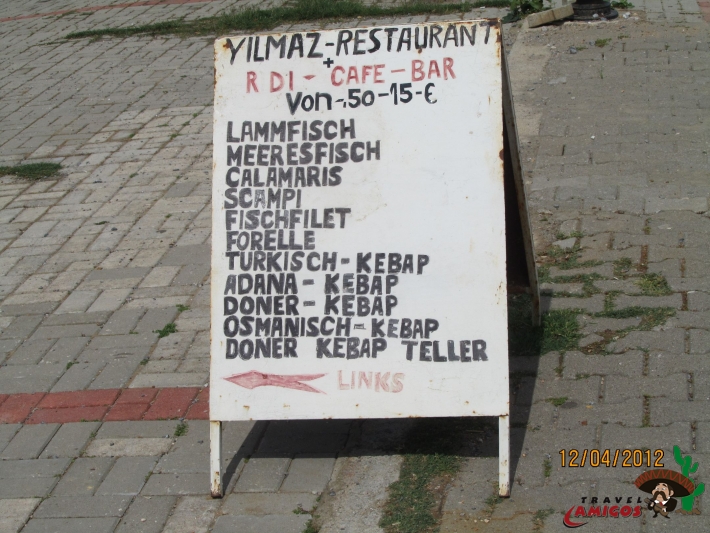 YILMAZ-RESTAURANT
+
R DI - CAFE - BAR
Von -,50-15-€
LAMMFISCH
MEERESFISCH
CALAMARIS
SCAMPI
FISCHFILET
FORELLE
TURKISCH-KEBAP
ADANA-KEBAP
DONER-KEBAP
OSMANISCH-KEBAP
DONER KEBAP TELLER
LINKS
12/04/2012
TRAVEL
AMIGOS